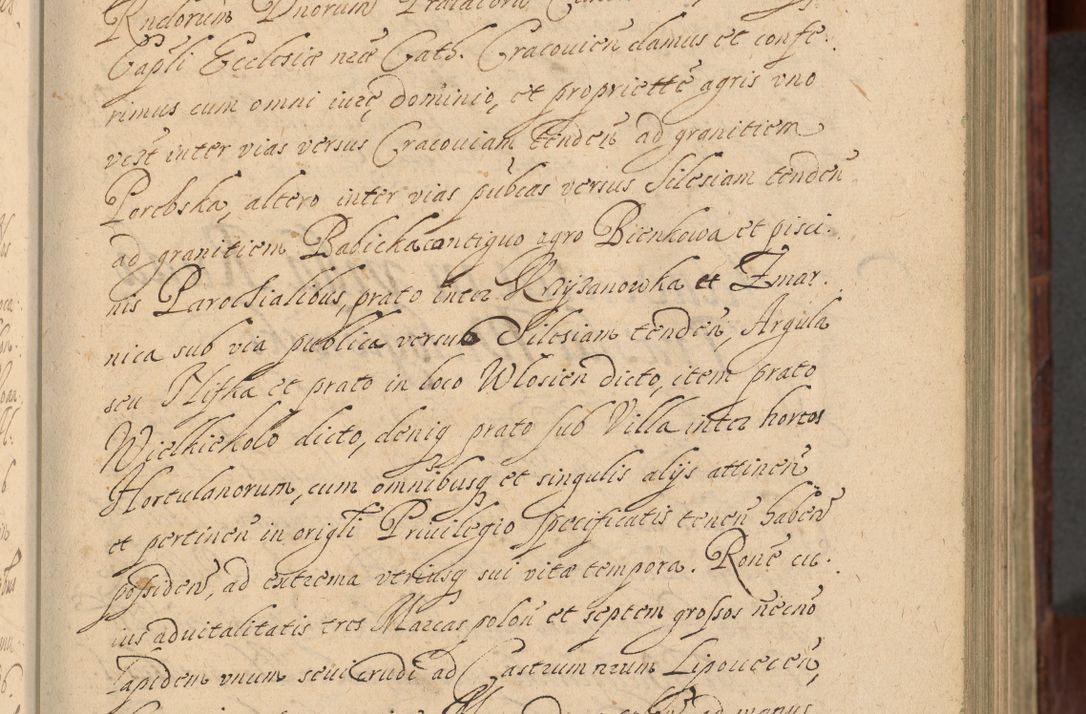 Rndorum Dnorum Prælatorum
Capli Ecclesiæ nræ Cath. Cracouien damus et confe-
rimus cum omni iure, dominio, et propriette agris vno
vest inter vias versus Cracouiam tenden ad granitiem
Porebska, altero inter vias publicas versus Silesiam tenden
ad granitiem Babicka contiguo agro Bienkowa et pisci-
nis Parochialibus, prato inter Krzyzanowka et Zmar-
nica sub via publica versus Silesiam tenden, Argula
seu Hlifka et prato in loco Wlosien dicto, item prato
Wielkiekolo dicto, deniq prato sub Villa inter hortos
Hortulanorum, cum omnibusq et singulis alijs attinen
et pertinen in origli Priuilegio specificatis tenen haben
possiden, ad extrema vtriusq sui vitæ tempora. Rone cu-
ius aduitalitatis tres Marcas polon et septem grossos necno
lapidem vnum seui crudi ad Castrum nrum Lipouecen,
ad manus